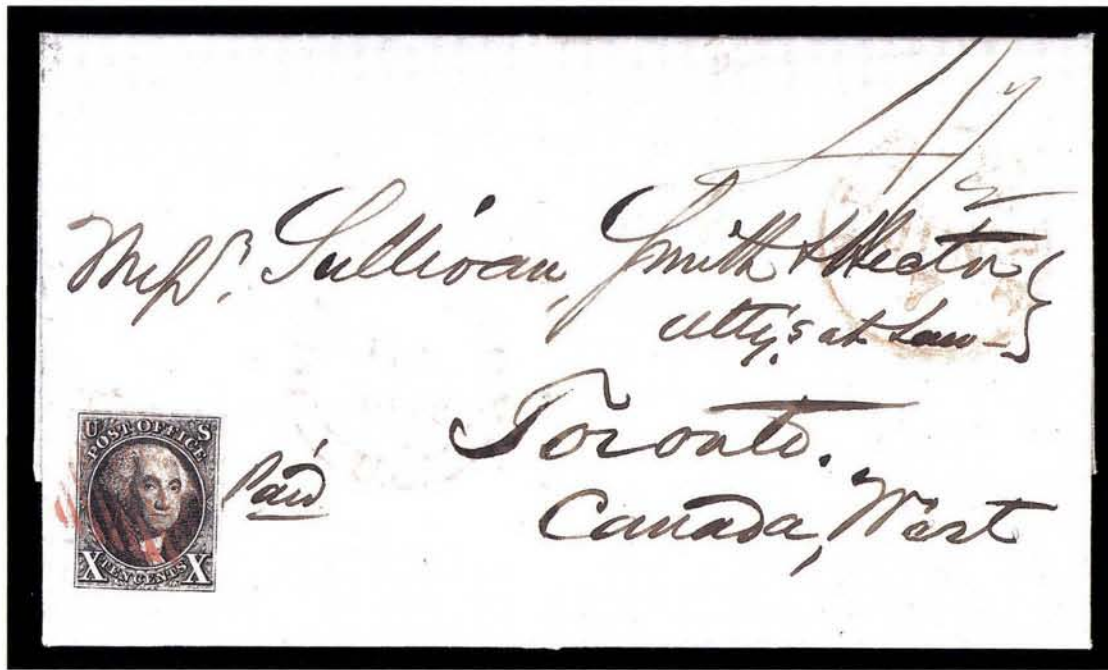 Messrs. Sullivan, Smith & Hector
Atty,s at Law
Toronto.
Canada, West
Paid
U S
POST OFFICE
X TEN CENTS X